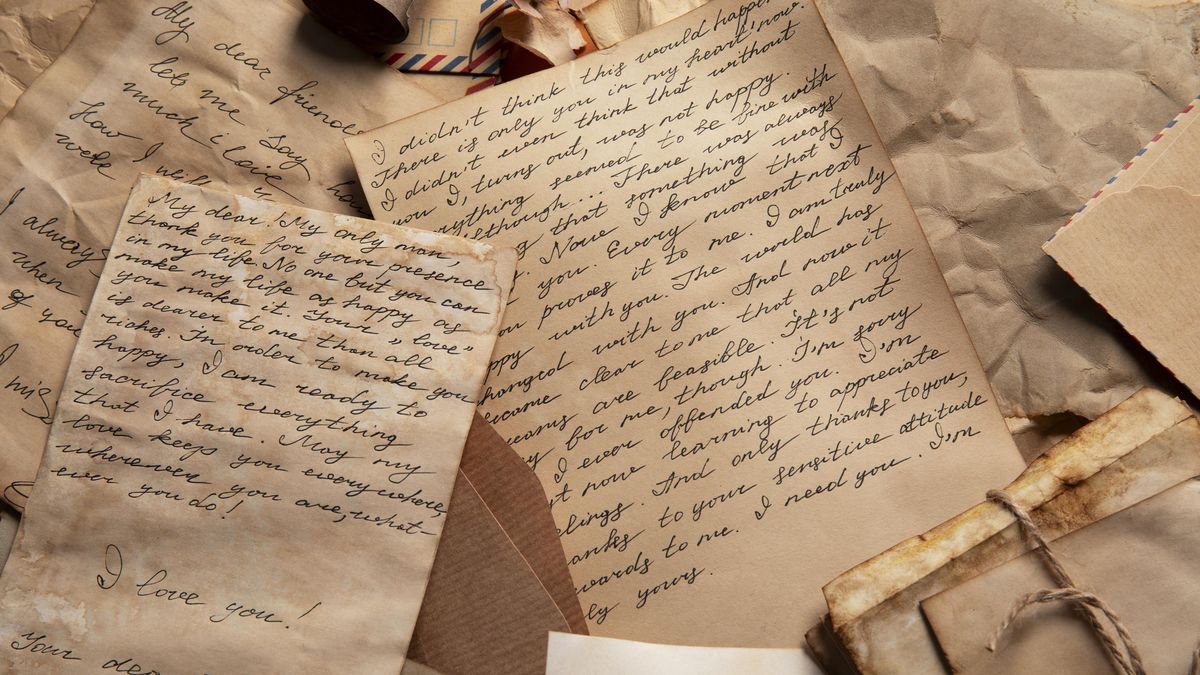 My dear friends
let me say how
much i love
How I will
week
I always
when
of you
I mis
My dear! My only man,
thank you for your presence
in my life. No one but you can
make my life as happy as
you make it. Your „love”
is dearer to me than all
riches. In order to make you
happy, I am ready to
sacrifice everything
that I have. May my
love keeps you everywhere,
wherever you are, what-
ever you do!
I love you!
Your dea
I didn't think this would happen
There is only you in my heart now.
I didn't even think that without
you I, turns out, was not happy.
erything seemed to be fine with
lthough... There was always
g that something was
. Now I know that I
you. Every moment next
ou proves it to me. I am truly
ppy with you. The world has
hanged with you. And now it
ecame clear to me that all my
reams are feasible. It's not
y for me, though. I'm sorry
I ever offended you. I'm
t now learning to appreciate
elings. And only thanks to you,
anks to your sensitive attitude
wards to me. I need you. I'm
ly yours.